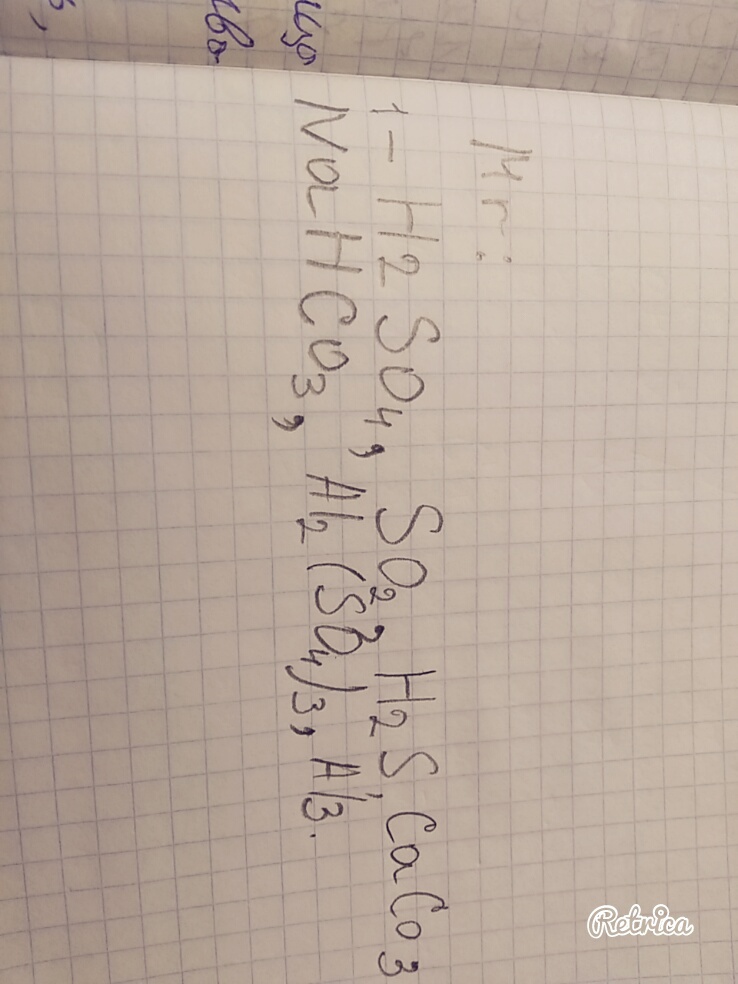 Mr:
1 - H2SO4, SO2, H2S, CaCo3
NaHCO3, Al2(SO4)3, Al3.
Retrica